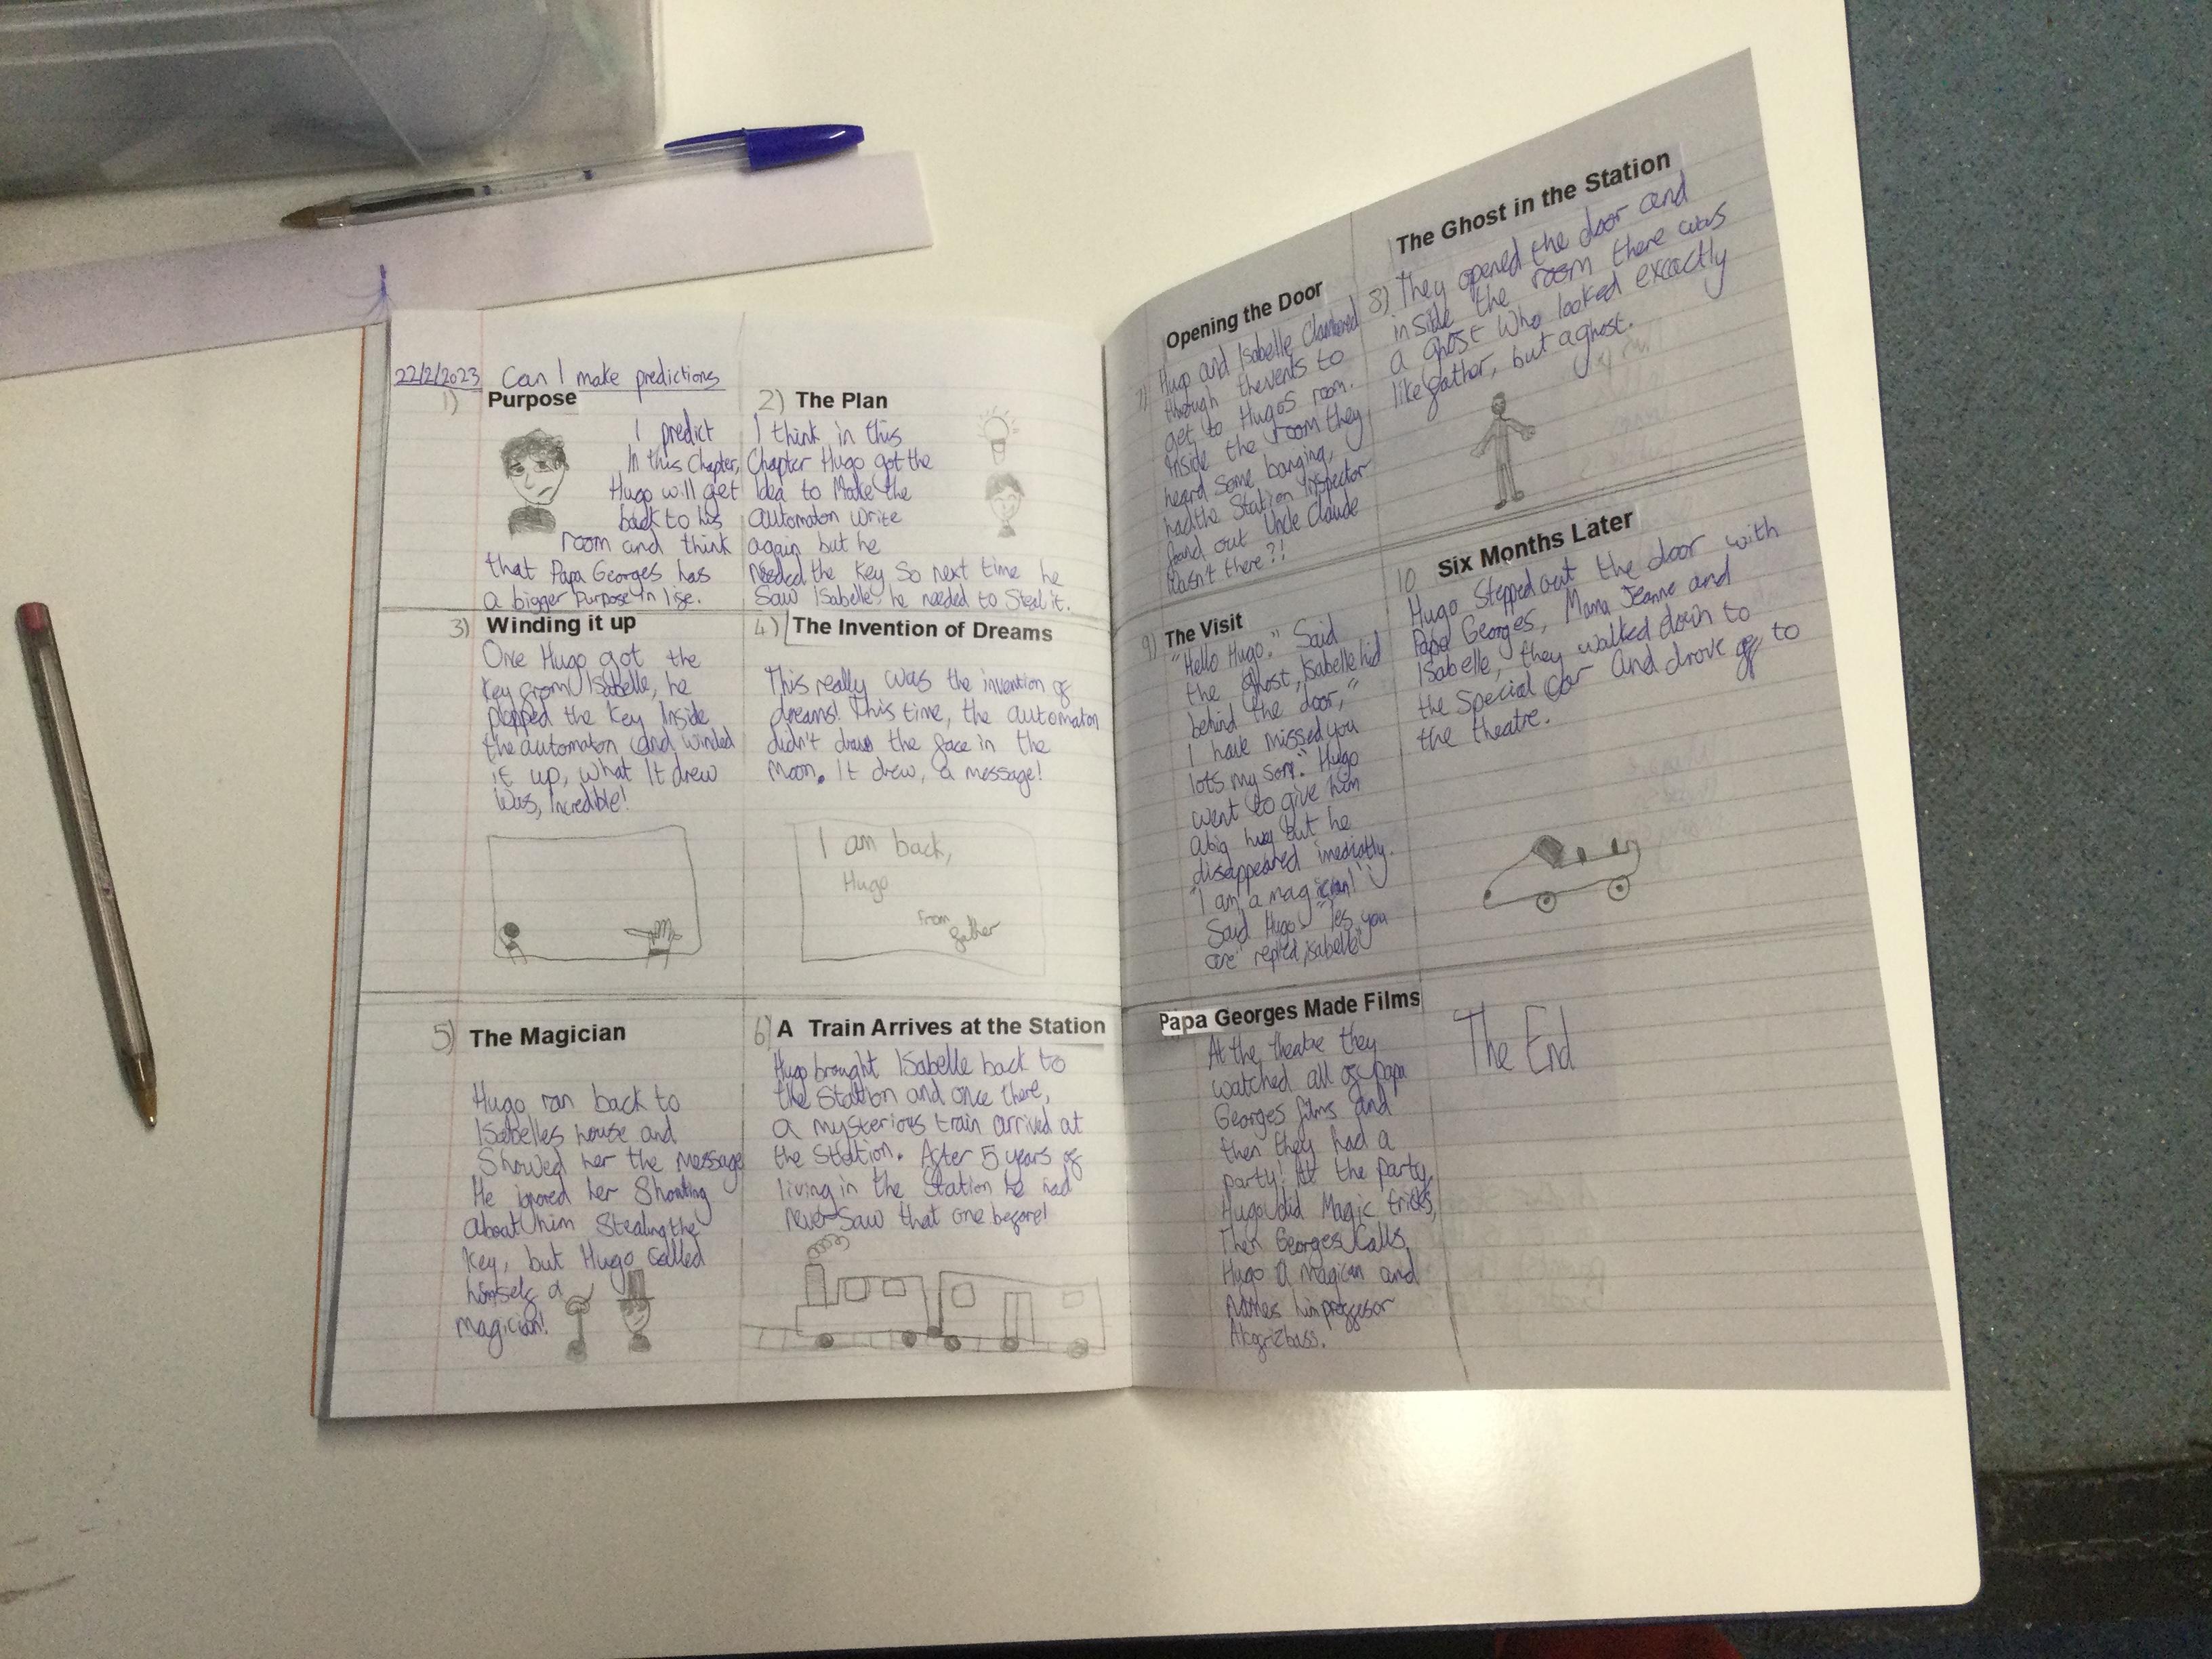 22/2/2023 Can I make predictions
1) Purpose
I predict
In this Chapter,
Hugo will get
back to his
room and think
that Papa Georges has
a bigger Purpose in life.
2) The Plan
I think in this
Chapter Hugo got the
Idea to Make the
automaton write
again but he
Needed the Key So next time he
Saw Isabelle, he needed to Steal it.
3) Winding it up
One Hugo got the
Key from Isabelle, he
plopped the Key Inside
the automaton and winded
it up, what It drew
Was, Incredible!
4) The Invention of Dreams
This really was the invention of
dreams! This time, the automaton
didn't draw the face in the
Moon. It drew, a message!
I am back,
Hugo
From
father
5) The Magician
Hugo ran back to
Isabelles house and
Showed her the Message
He ignored her Shouting
about him Stealing the
Key, but Hugo called
himself a
magician!
6) A Train Arrives at the Station
Hugo brought Isabelle back to
the Station and once there,
a mysterious train arrived at
the Station. After 5 years of
living in the Station he had
never Saw that one before!
7) Opening the Door
Hugo and Isabelle Clambered
through the vents to
get to Hugos room.
Inside the room they
heard Some banging,
had the Station Inspector
found out Uncle Claude
Wasn't there?!
8) The Ghost in the Station
They opened the door and
inside the room there was
a ghost Who looked excactly
like father, but a ghost.
9) The Visit
"Hello Hugo." Said
the Ghost, Isabelle hid
behind the door,"
I have missed you
lots my son." Hugo
went to give him
a big hug but he
disappeared imediatly.
"I am a magician!"
Said Hugo "Yes you
are" replied, isabelle
10 Six Months Later
Hugo Stepped out the door with
Papa Georges, Mama Jeanne and
Isabelle, they walked down to
the Special Car and drove off to
the theatre.
Papa Georges Made Films
At the theatre they
watched all of papa
Georges films and
then they had a
party! At the party,
Hugo did Magic tricks,
Then Georges Calls
Hugo a magican and
Names him proffesor
The End